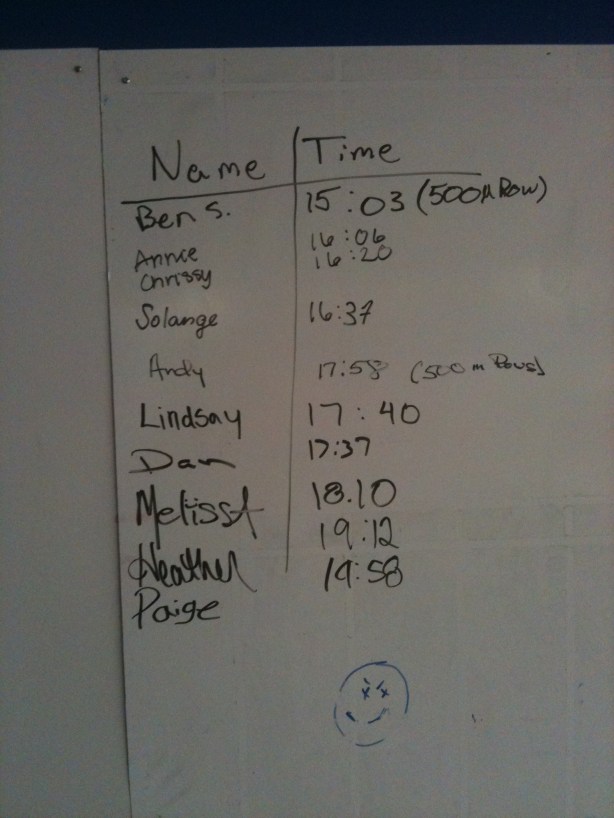 Name Time
Ben S. 15:03 (500m Row)
Annie 16:06
Chrissy 16:20
Solange 16:37
Andy 17:58 (500 m Rows)
Lindsay 17:40
Dan 17:37
Melissa 18.10
Heather 19:12
Paige 19:58